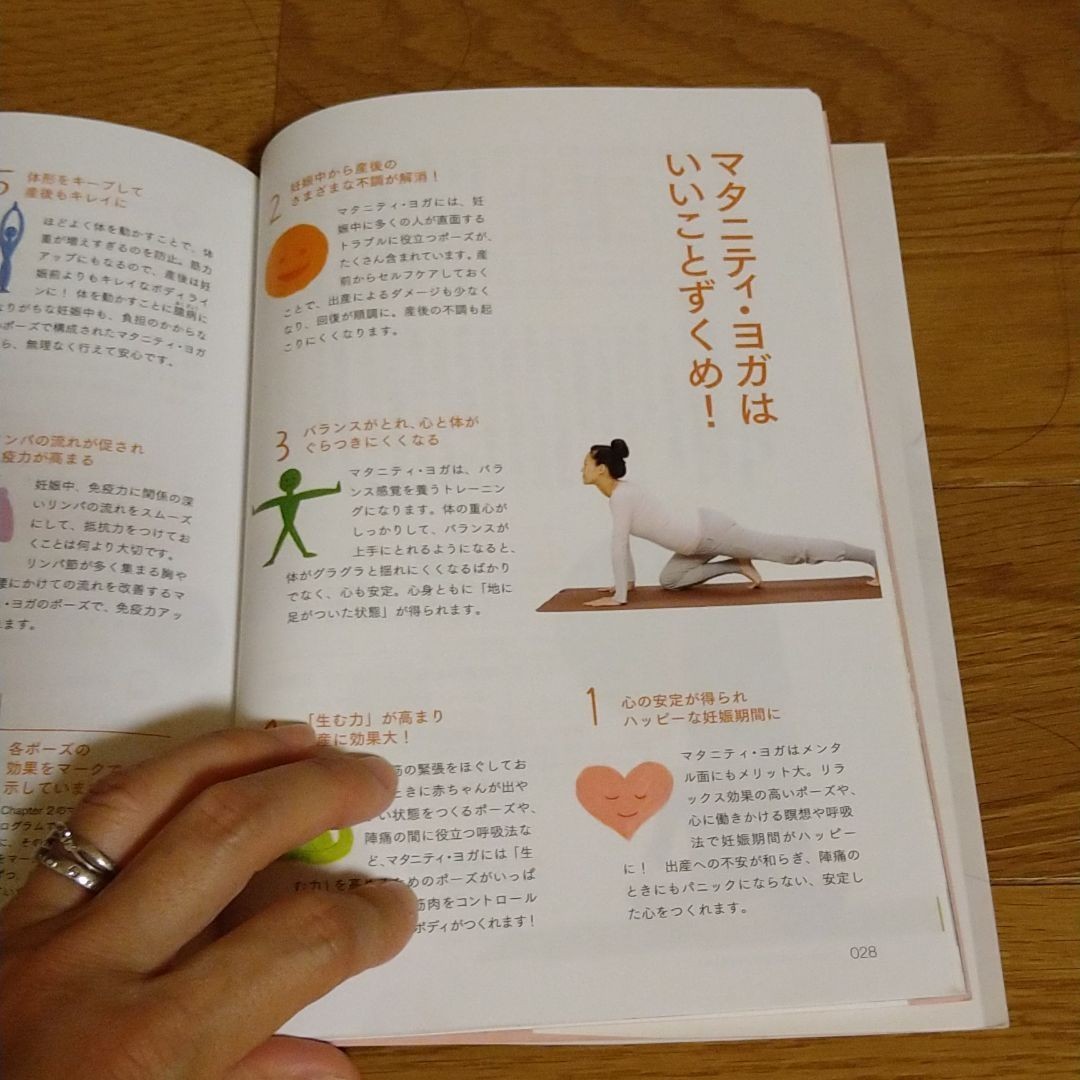 マタニティ・ヨガは
いいことずくめ！
1
心の安定が得られ
ハッピーな妊娠期間に
マタニティ・ヨガはメンタ
ル面にもメリット大。リラ
ックス効果の高いポーズや、
心に働きかける瞑想や呼吸
法で妊娠期間がハッピー
に！ 出産への不安が和らぎ、陣痛の
ときにもパニックにならない、安定し
た心をつくれます。
2
妊娠中から産後の
さまざまな不調が解消！
マタニティ・ヨガには、妊
娠中に多くの人が直面する
トラブルに役立つポーズが、
たくさん含まれています。産
前からセルフケアしておく
ことで、出産によるダメージも少なく
なり、回復が順調に。産後の不調も起
こりにくくなります。
3
バランスがとれ、心と体が
ぐらつきにくくなる
マタニティ・ヨガは、バラ
ンス感覚を養うトレーニン
グになります。体の重心が
しっかりして、バランスが
上手にとれるようになると、
体がグラグラと揺れにくくなるばかり
でなく、心も安定。心身ともに「地に
足がついた状態」が得られます。
「生む力」が高まり
産に効果大！
筋の緊張をほぐしてお
ときに赤ちゃんが出や
い状態をつくるポーズや、
陣痛の間に役立つ呼吸法な
ど、マタニティ・ヨガには「生
む力」を高めるためのポーズがいっぱ
筋肉をコントロール
ボディがつくれます！
028
5
体形をキープして
産後もキレイに
ほどよく体を動かすことで、体
重が増えすぎるのを防止。筋力
アップにもなるので、産後は妊
娠前よりもキレイなボディライ
ンに！ 体を動かすことに臆病に
なりがちな妊娠中も、負担のかからな
いポーズで構成されたマタニティ・ヨガ
ら、無理なく行えて安心です。
ンパの流れが促され
疫力が高まる
妊娠中、免疫力に関係の深
いリンパの流れをスムーズ
にして、抵抗力をつけてお
くことは何より大切です。
リンパ節が多く集まる胸や
腰にかけての流れを改善するマ
・ヨガのポーズで、免疫力アッ
ます。
各ポーズの
効果をマークで
示していま
Chapter 2の
ログラムで
に、そ
をマー